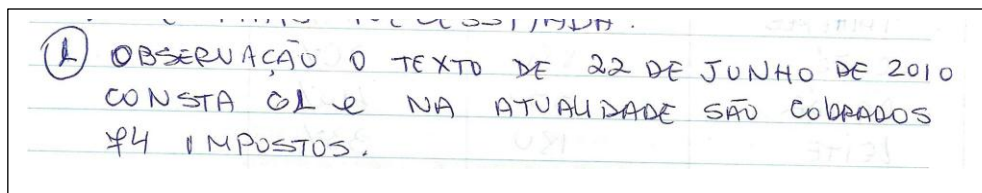 ① OBSERVAÇÃO O TEXTO DE 22 DE JUNHO DE 2010
CONSTA 61 e NA ATUALIDADE SÃO COBRADOS
74 IMPOSTOS.